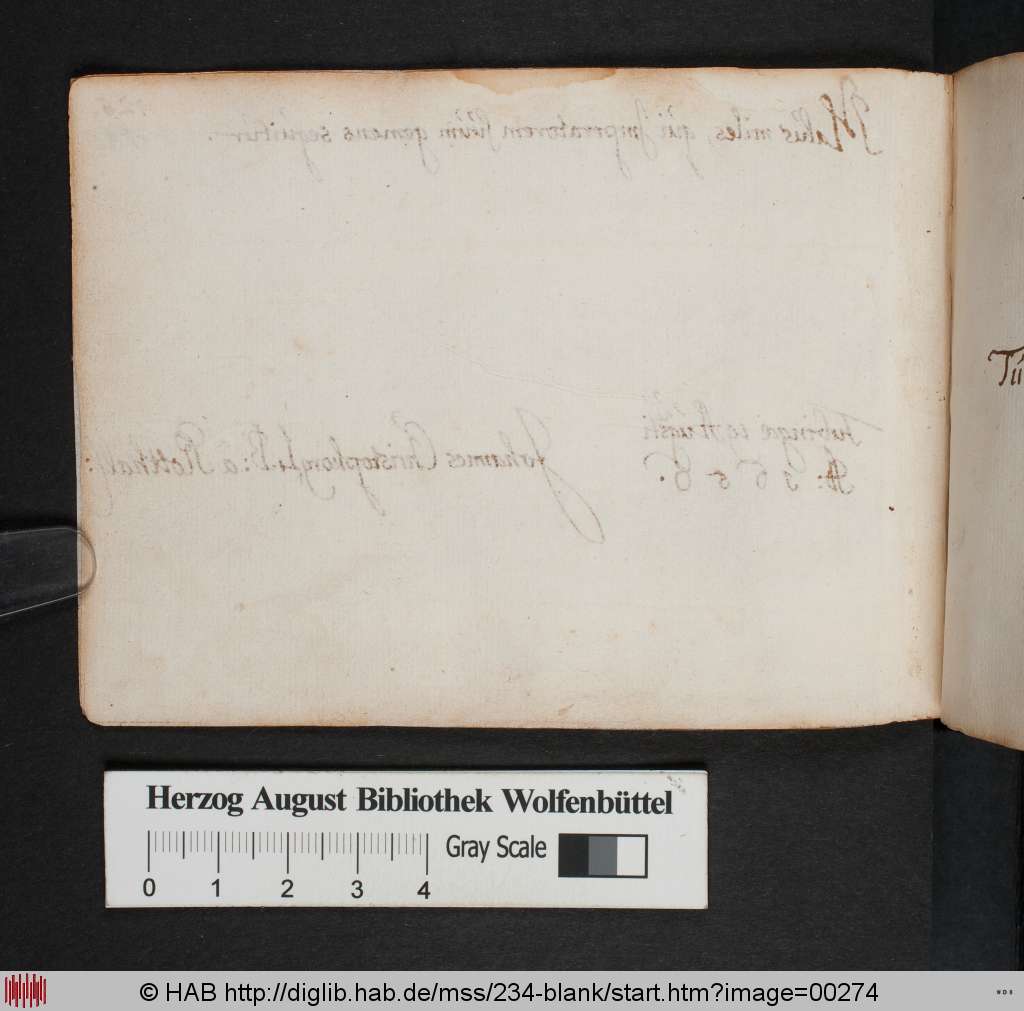 Malus miles, qui Imperatorem suum gemens sequitur.
Tubingæ 19 Augusti
A: 1 6 5 6.
Johannes Christophorus
Tü
Herzog August Bibliothek Wolfenbüttel
Gray Scale
0 1 2 3 4
© HAB http://diglib.hab.de/mss/234-blank/start.htm?image=00274